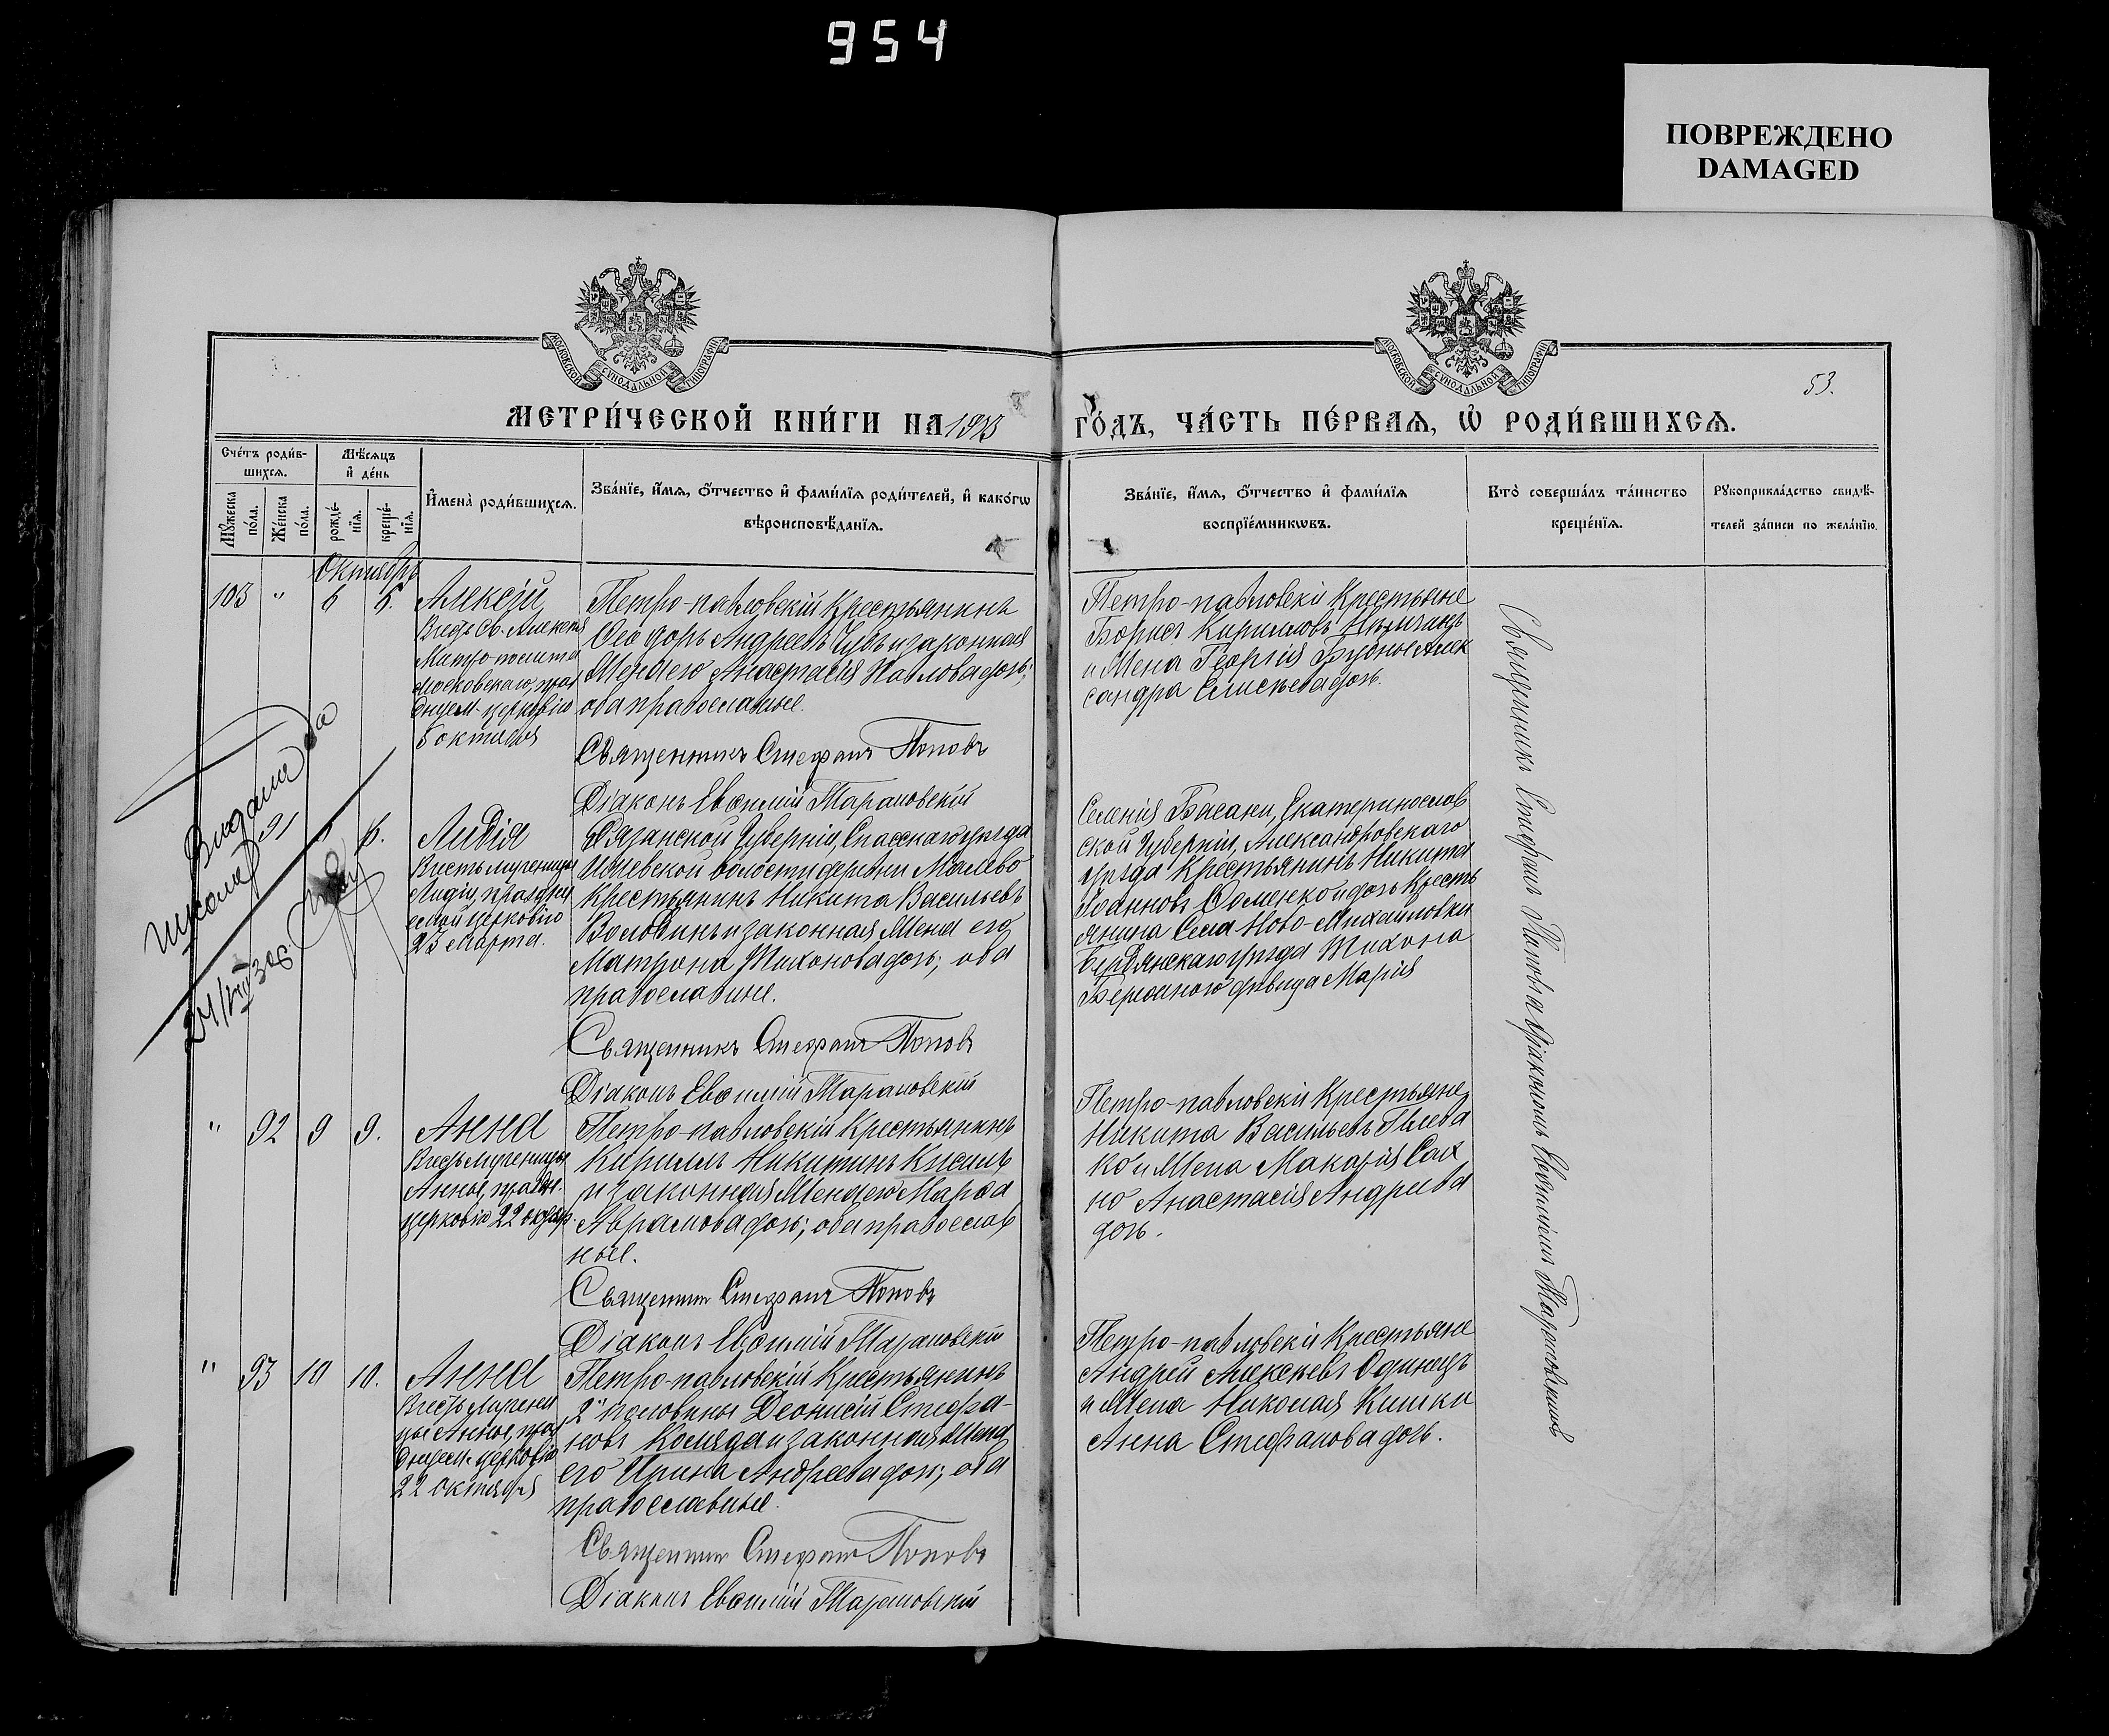 954
ПОВРЕЖДЕНО
DAMAGED
МОСКОВСКОЙ СѴНОДАЛЬНОЙ ТИПОГРАФІИ
МОСКОВСКОЙ СѴНОДАЛЬНОЙ ТИПОГРАФІИ
53.
МЕТРИ́ЧЕСКОЙ КНИ́ГИ НА 1913
ГО́ДЪ, ЧА́СТЬ ПЕ́РВАѦ, Ѡ҆ РОДИ́ВШИХСѦ.
Сче́тъ роди́в-
шихсѧ.
Мѣ́сѧцъ
и҆ де́нь
Мꙋ́жеска
по́ла.
Же́нска
по́ла.
рожде́-
нїѧ.
креще́-
нїѧ.
И҆мена̀ роди́вшихсѧ.
Зва́нїе, и҆́мѧ, ѻ҆́тчество и҆ фами́лїѧ роди́телей, и҆ како́гѡ
вѣроисповѣ́данїѧ.
Зва́нїе, и҆́мѧ, ѻ҆́тчество и҆ фами́лїѧ
воспрїе́мникѡвъ.
Кто̀ соверша́лъ та́инство
креще́нїѧ.
Рꙋкоприкла́дство свидѣ́-
телей за́писи по жела́нїю.
Октябрь
103 " 6 6.
Алексій
Въ честь Св. Алексія
Митрополита
Московскаго, праз
днуем. церковію
5 октября
Петро-павловскій Крестьянинъ
Ѳеодоръ Андреевъ и законная
Жена его Анастасія Павлова дочь;
оба православные.
Священникъ Стефанъ Поповъ
Діаконъ Евѳимій Тарановскій
Петро-павловскіе Крестьяне
Борисъ Кирилловъ
и Жена Георгія Алек
сандра Елисѣева дочь.
Выдана
школа
91 6.
Лидія
Въ честь мученицы
Лидіи, праздну
емой церковію
23 Марта.
Рязанской Губерніи, Спасскаго уѣзда
волости деревни
Крестьянинъ Никита Васильевъ
Володинъ и законная Жена его
Матрона Тихонова дочь; оба
православные.
Священникъ Стефанъ Поповъ
Діаконъ Евѳимій Тарановскій
Селенія Басани, Екатеринослав
ской Губерніи, Александровскаго
уѣзда Крестьянинъ Никита
Іоанновъ дочь Кресть
янина Села Ново-Михайловки
Бердянскаго уѣзда Тихона
дѣвица Марія
" 92 9 9.
Анна
Въ честь мученицы
Анны, празд.
церковію 22 октяб.
Петро-павловскій Крестьянинъ
Кириллъ Никитинъ Кисиль
и законная Жена его Марѳа
Аврамова дочь; оба православ
ные.
Священник Стефанъ Поповъ
Діаконъ Евѳимій Тарановскій
Петро-павловскіе Крестьяне
Никита Васильевъ Плева
ко и Жена Макарія Сах
но Анастасія Андреева
дочь.
" 93 10 10.
Анна
Въ честь мучени
цы Анны, праз
днуем. церковію
22 октября
Петро-павловскій Крестьянинъ
2й половины Деонисій Стефа-
новъ Коляда и законная Жена
его Ирина Андреева дочь; оба
православные.
Священник Стефанъ Поповъ
Діаконъ Евѳимій Тарановскій
Петро-павловскіе Крестьяне
Андрей Алексѣевъ Одинецъ
и Жена Николая Кишки
Анна Стефанова дочь.
Священникъ Стефанъ Поповъ съ діакономъ Евѳиміемъ Тарановскимъ